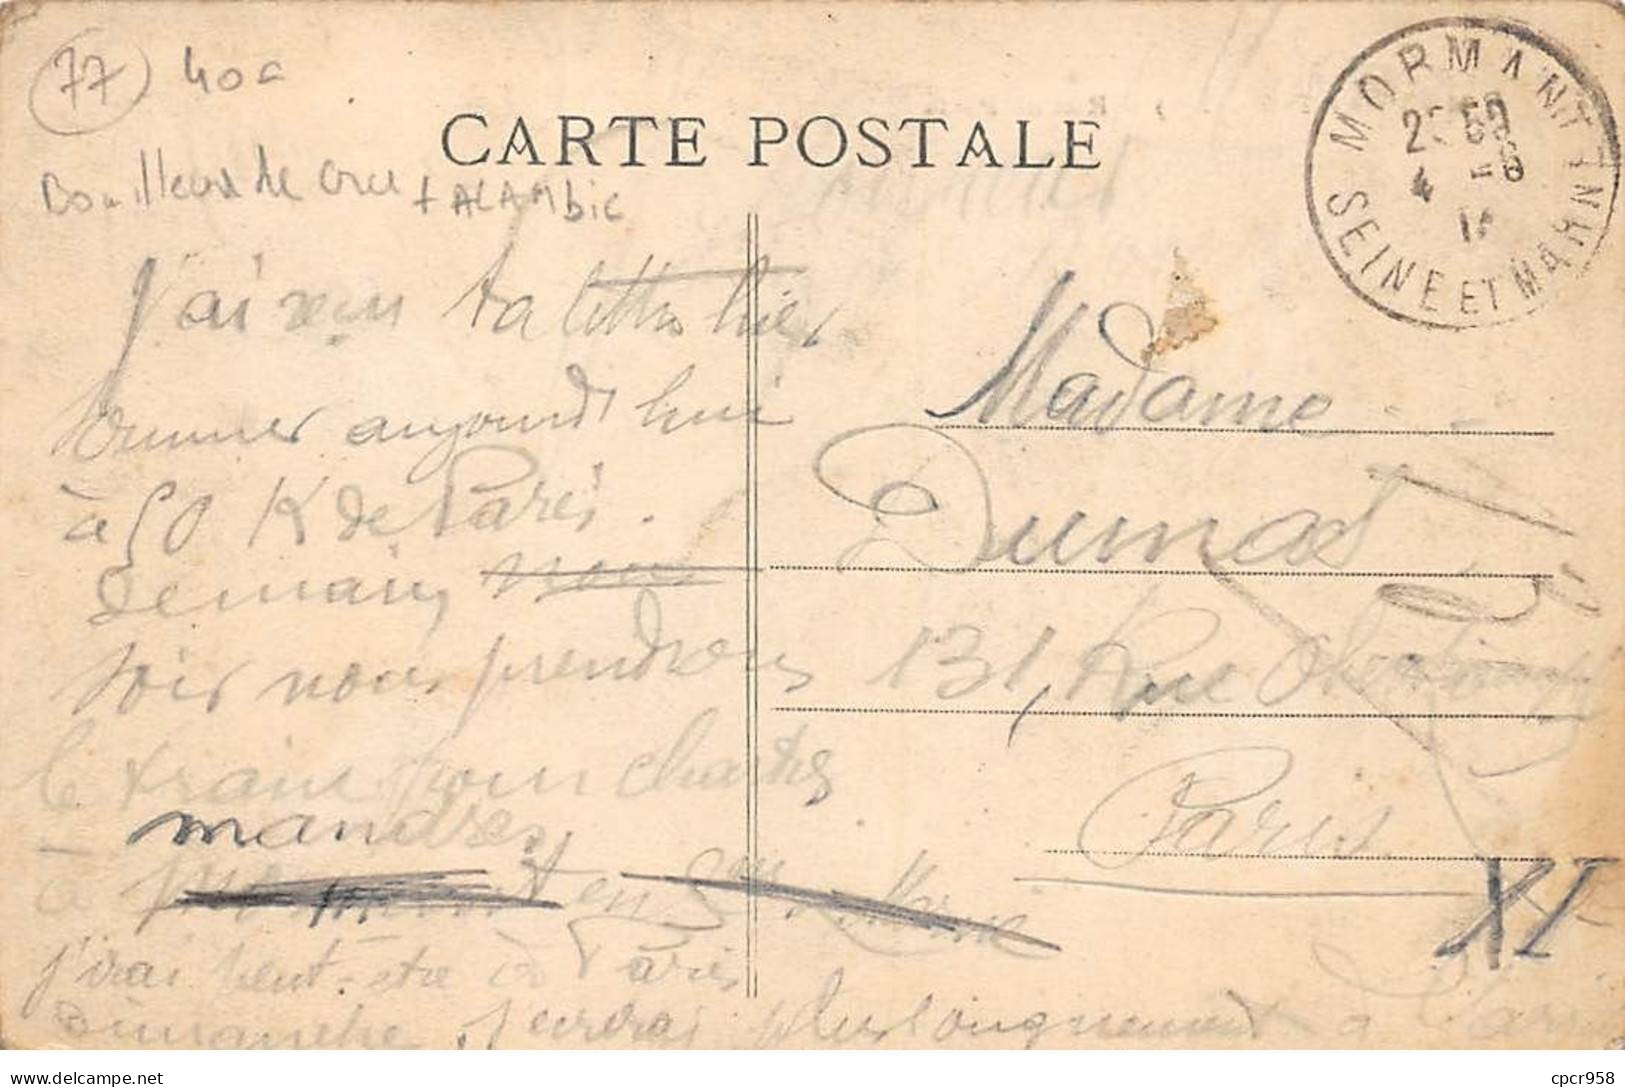 77 40c
CARTE POSTALE
Bouilleur de cru + ALAMbic
MORMANT
4 -8
SEINE ET MARNE
J'ai reçu ta lettre hier
aujourd'hui
à 50 K de Paris.
Demain
soir nous prendrons
le train pour Chartres
mandres
à en
j'irai peut-être à Paris
Dimanche, j'écrirai plus longuement
Madame
Dumas
131, Rue
Paris
XI
delcampe.net
cpcr958